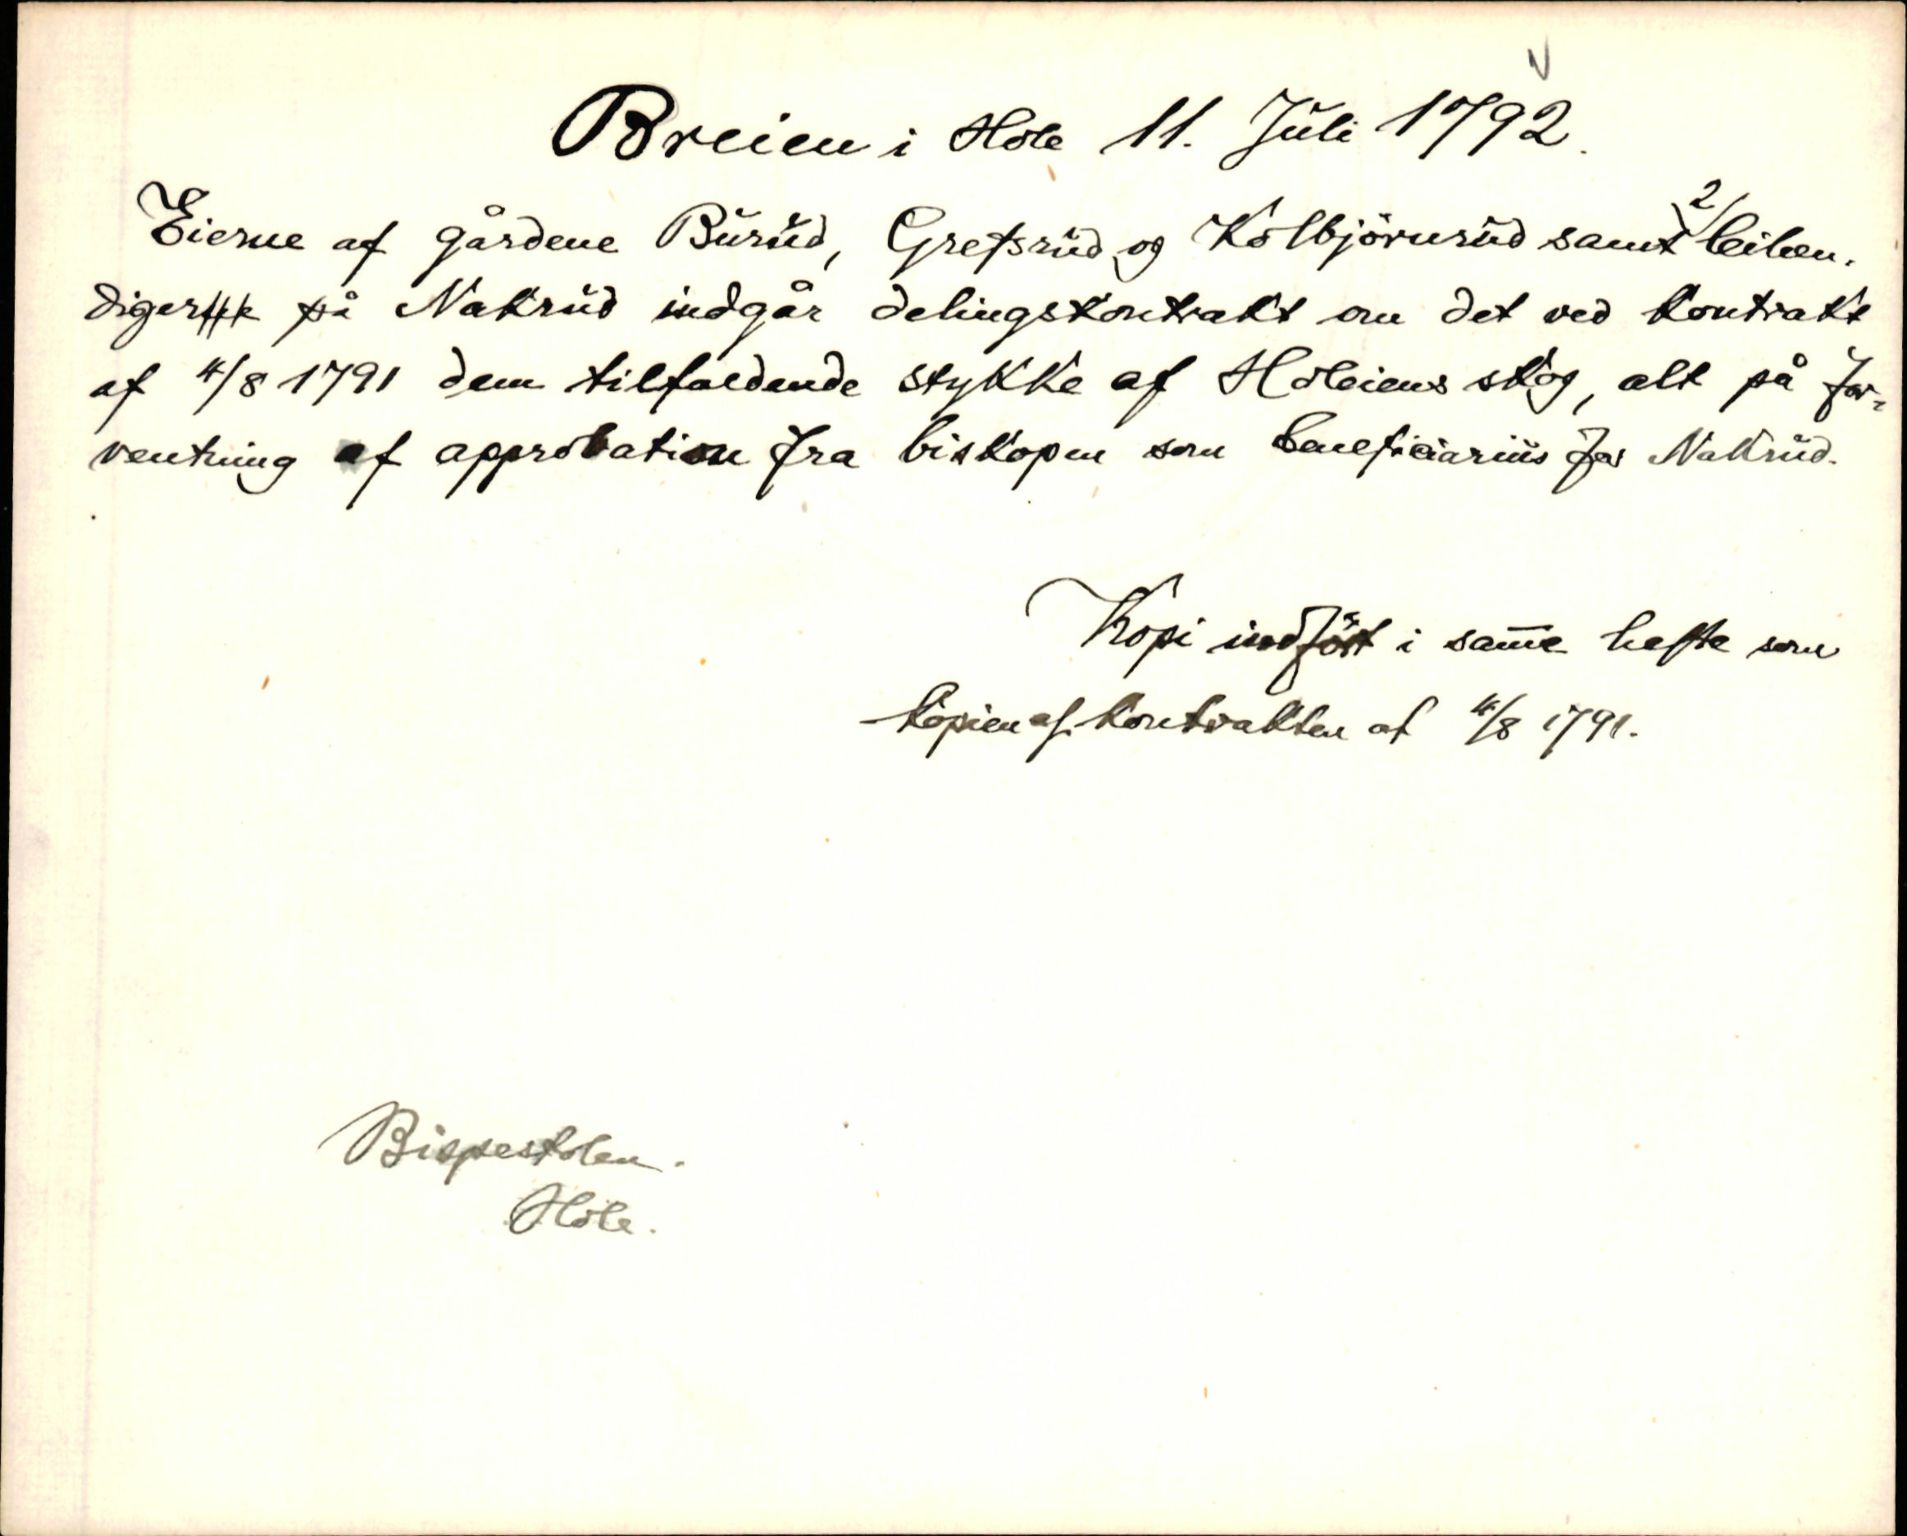 Breien i Hole 11. Juli 1792.
Eierne af gårdene Burud, Grefsrud og Kolbjörnsrud samt 2 leilæn-
diger på Nakrud indgår delingskontrakt om det ved kontrakt
af 4/8 1791 dem tilfaldende stykke af Holeiens skog, alt på for-
ventning af approbation fra biskopen som beneficiarius for Nakrud.
Kopi indfört i sam̅e hefte som
kopien af kontrakten af 4/8 1791.
Bispestolen.
Hole.